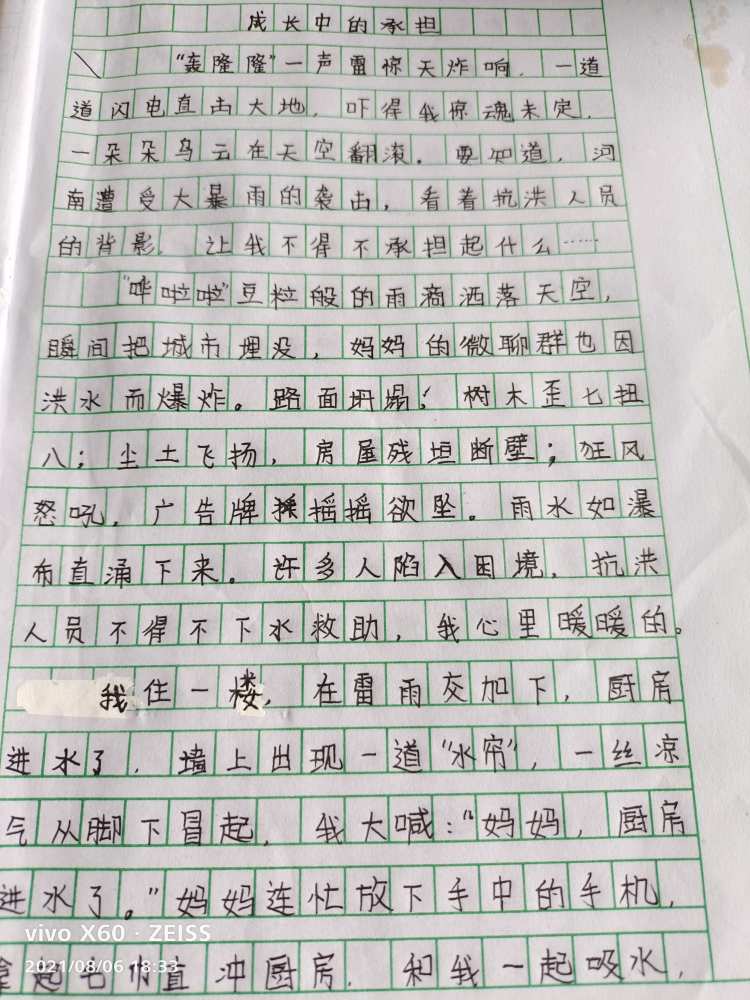 成长中的承担
"轰隆隆"一声雷惊天炸响，一道
道闪电直击大地，吓得我惊魂未定，
一朵朵乌云在天空翻滚。要知道，河
南遭受大暴雨的袭击，看着抗洪人员
的背影，让我不得不承担起什么……
"哗啦啦"豆粒般的雨滴洒落天空，
瞬间把城市埋没，妈妈的微聊群也因
洪水而爆炸。路面坍塌！树木歪七扭
八；尘土飞扬，房屋残垣断壁；狂风
怒吼，广告牌摇摇欲坠。雨水如瀑
布直涌下来。许多人陷入困境，抗洪
人员不得不下水救助，我心里暖暖的。
我住一楼，在雷雨交加下，厨房
进水了，墙上出现一道"水帘"，一丝凉
气从脚下冒起，我大喊："妈妈，厨房
进水了。"妈妈连忙放下手中的手机，
拿起毛巾直冲厨房，和我一起吸水，
vivo X60 · ZEISS
2021/08/06 18:33